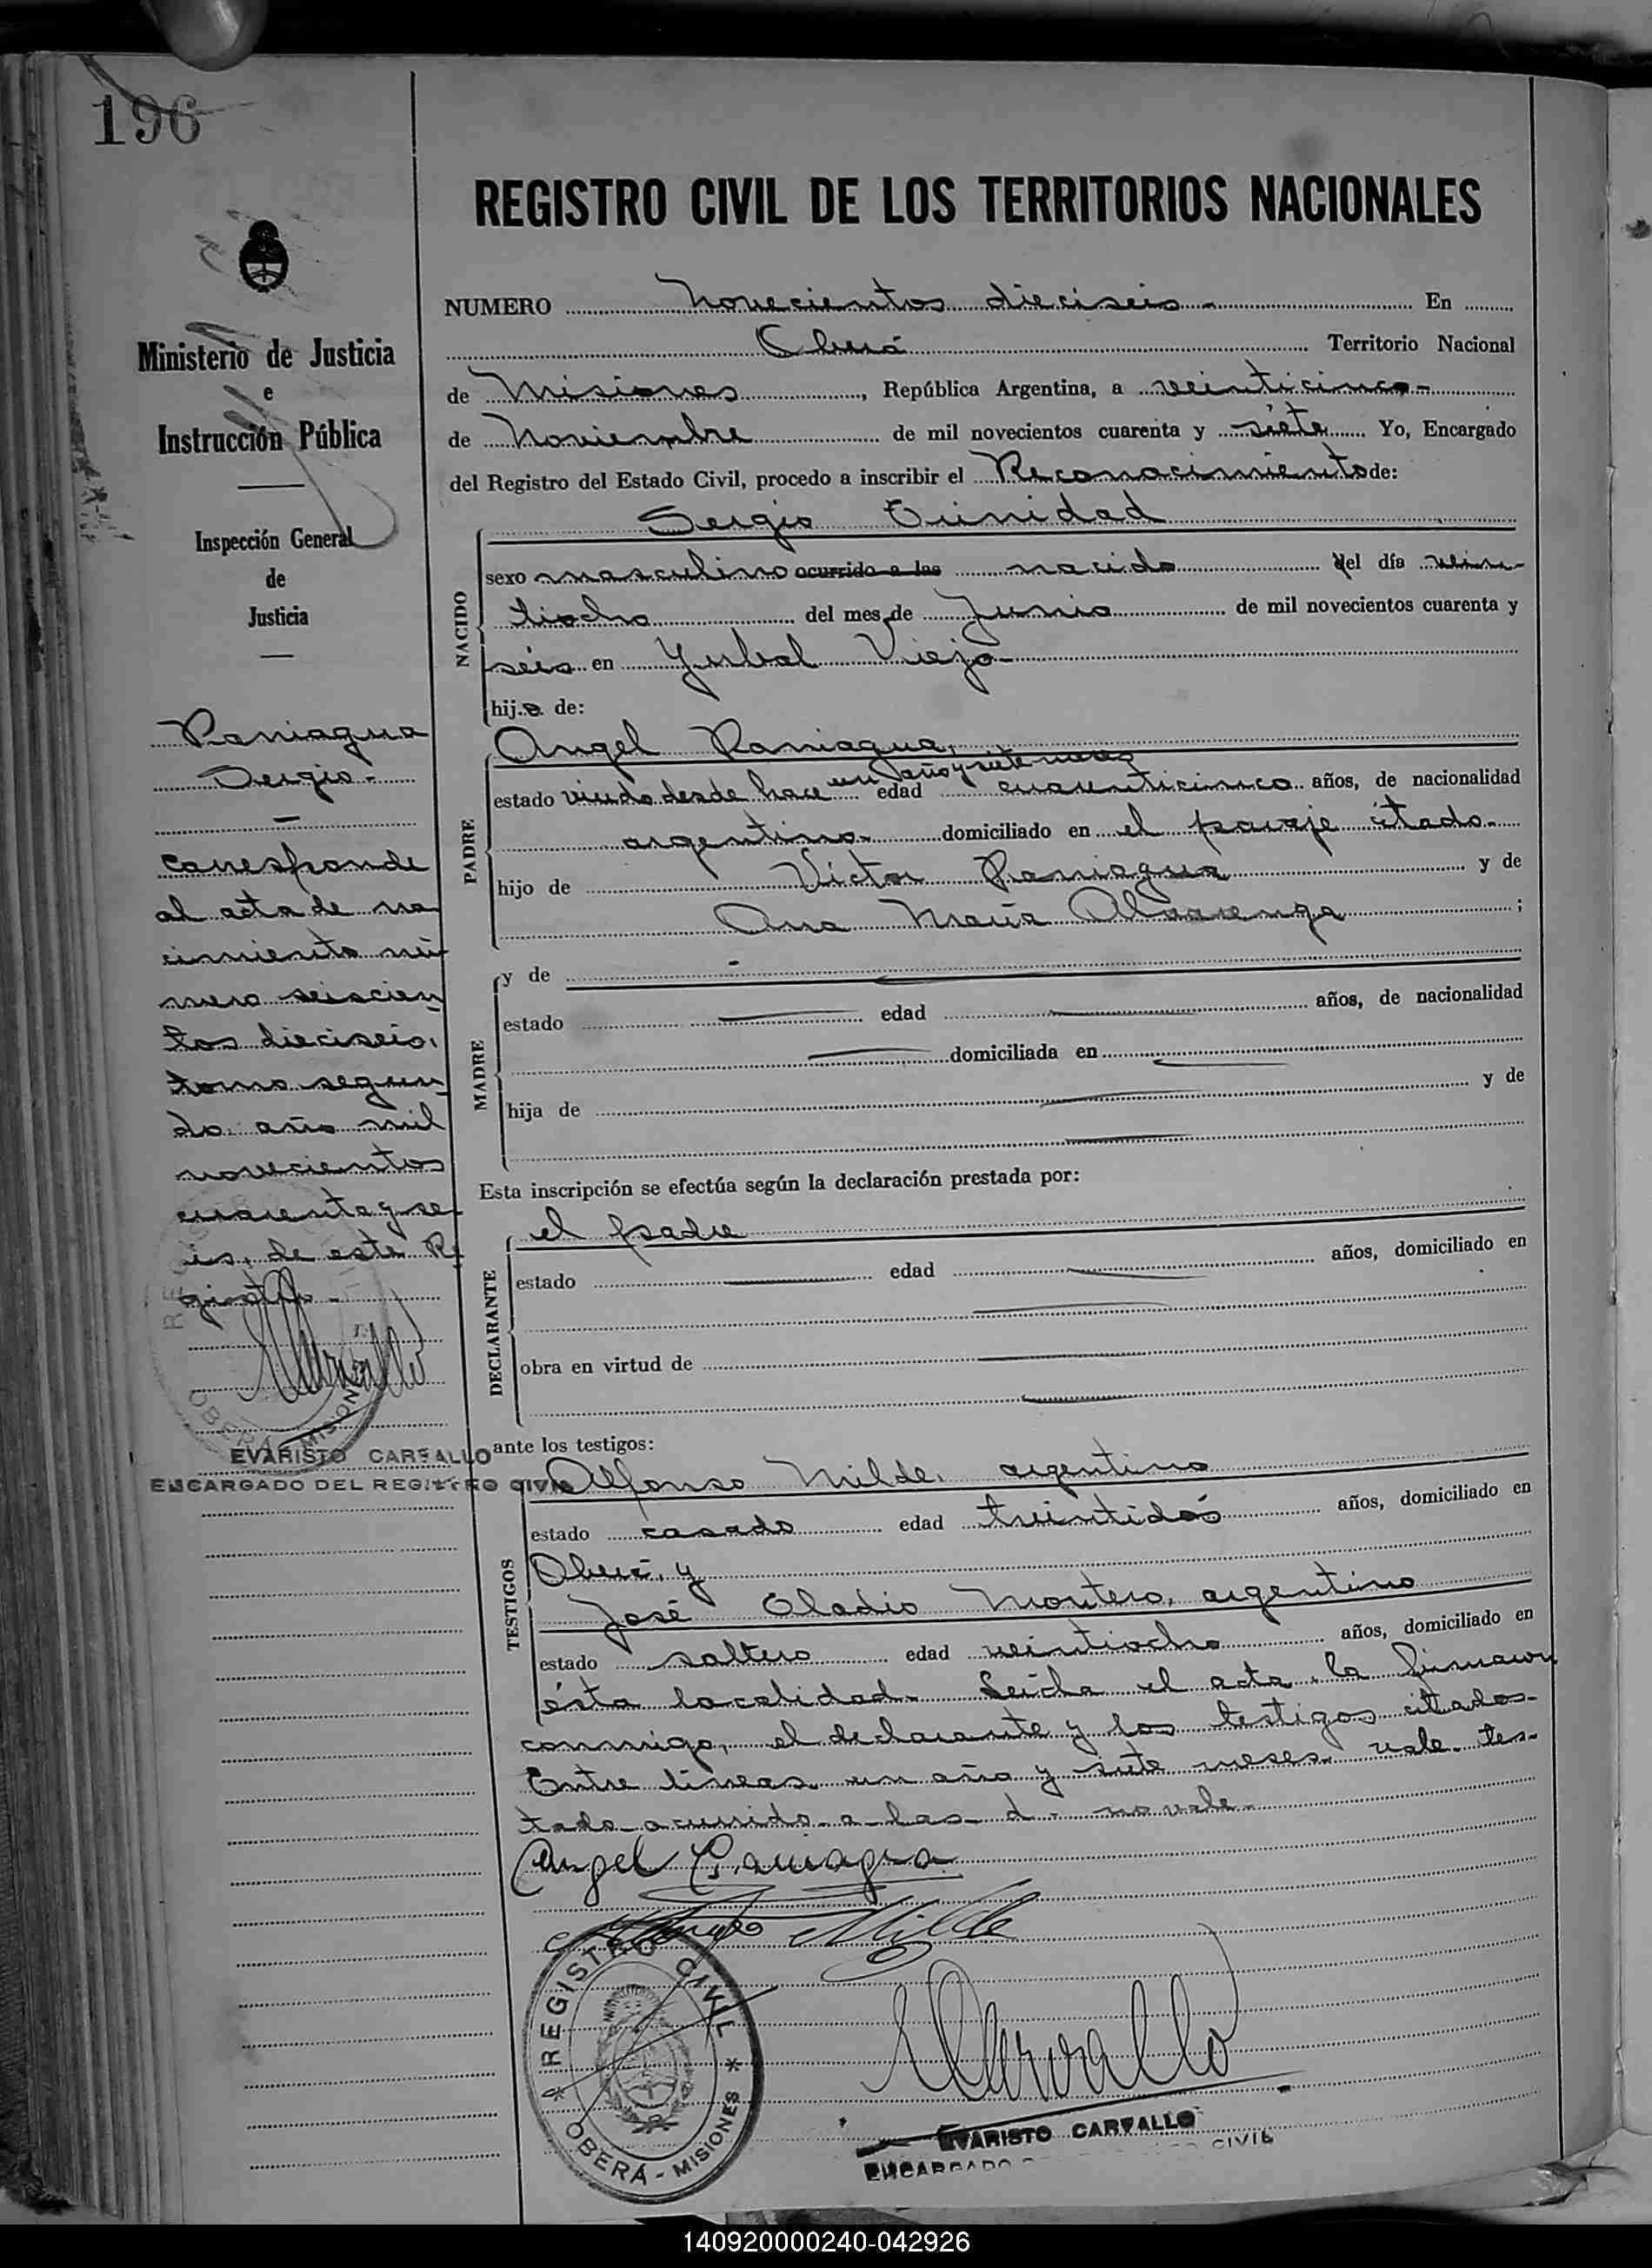 196
REGISTRO CIVIL DE LOS TERRITORIOS NACIONALES
Ministerio de Justicia
e
Instrucción Pública
Inspección General
de
Justicia
Paniagua
Sergio -
corresponde
al acta de na
cimiento nú-
mero seiscien
tos dieciseis,
tomo segun
do, año mil
novecientos
cuarenta y se
is, de este Re
gistro -
EVARISTO CARVALLO
ENCARGADO DEL REGISTRO CIVIL
NUMERO novecientos dieciseis - En
Oberá Territorio Nacional
de Misiones, República Argentina, a veinticinco -
de Noviembre de mil novecientos cuarenta y siete Yo, Encargado
del Registro del Estado Civil, procedo a inscribir el Reconocimiento de:
Sergio Trinidad
NACIDO
sexo masculino ocurrido a las nacido del día vein-
tiocho del mes de Junio de mil novecientos cuarenta y
séis en Yerbal Viejo -
hijo de:
PADRE
Angel Paniagua,
un año y siete meses
estado viudo desde hace edad cuarenticinco años, de nacionalidad
argentino - domiciliado en el paraje citado -
hijo de Victor Paniagua y de
Ana María Alvarenga ;
MADRE
y de -
estado edad años, de nacionalidad
domiciliada en
hija de y de
Esta inscripción se efectúa según la declaración prestada por:
DECLARANTE
el padre
estado edad años, domiciliado en
obra en virtud de
ante los testigos:
TESTIGOS
Alfonso Milde, argentino
estado casado edad treintidós años, domiciliado en
Oberá, y
José Eladio Montero, argentino
estado soltero edad veintiocho años, domiciliado en
ésta localidad - Leída el acta, la firmaron
conmigo, el declarante y los testigos citados -
Entre líneas un año y siete meses - vale - tes-
tado - ocurrido - a - las - d - no vale -
Angel Paniagua
Alfonso Milde
ECarvallo
REGISTRO CIVIL
OBERÁ - MISIONES
EVARISTO CARVALLO
ENCARGADO CIVIL
140920000240-042926